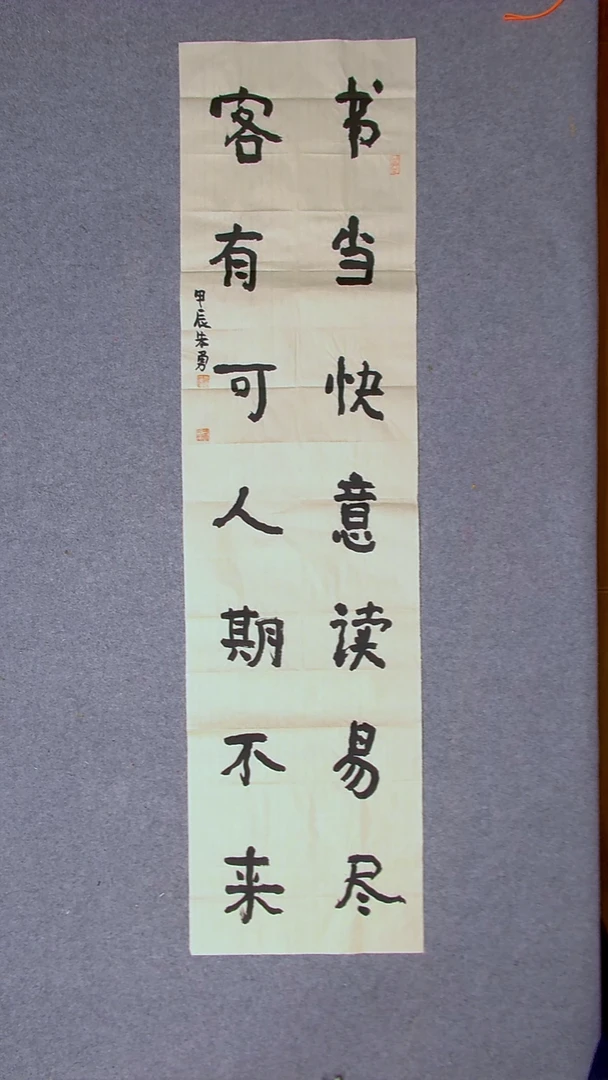 书当快意读易尽
客有可人期不来
甲辰朱勇